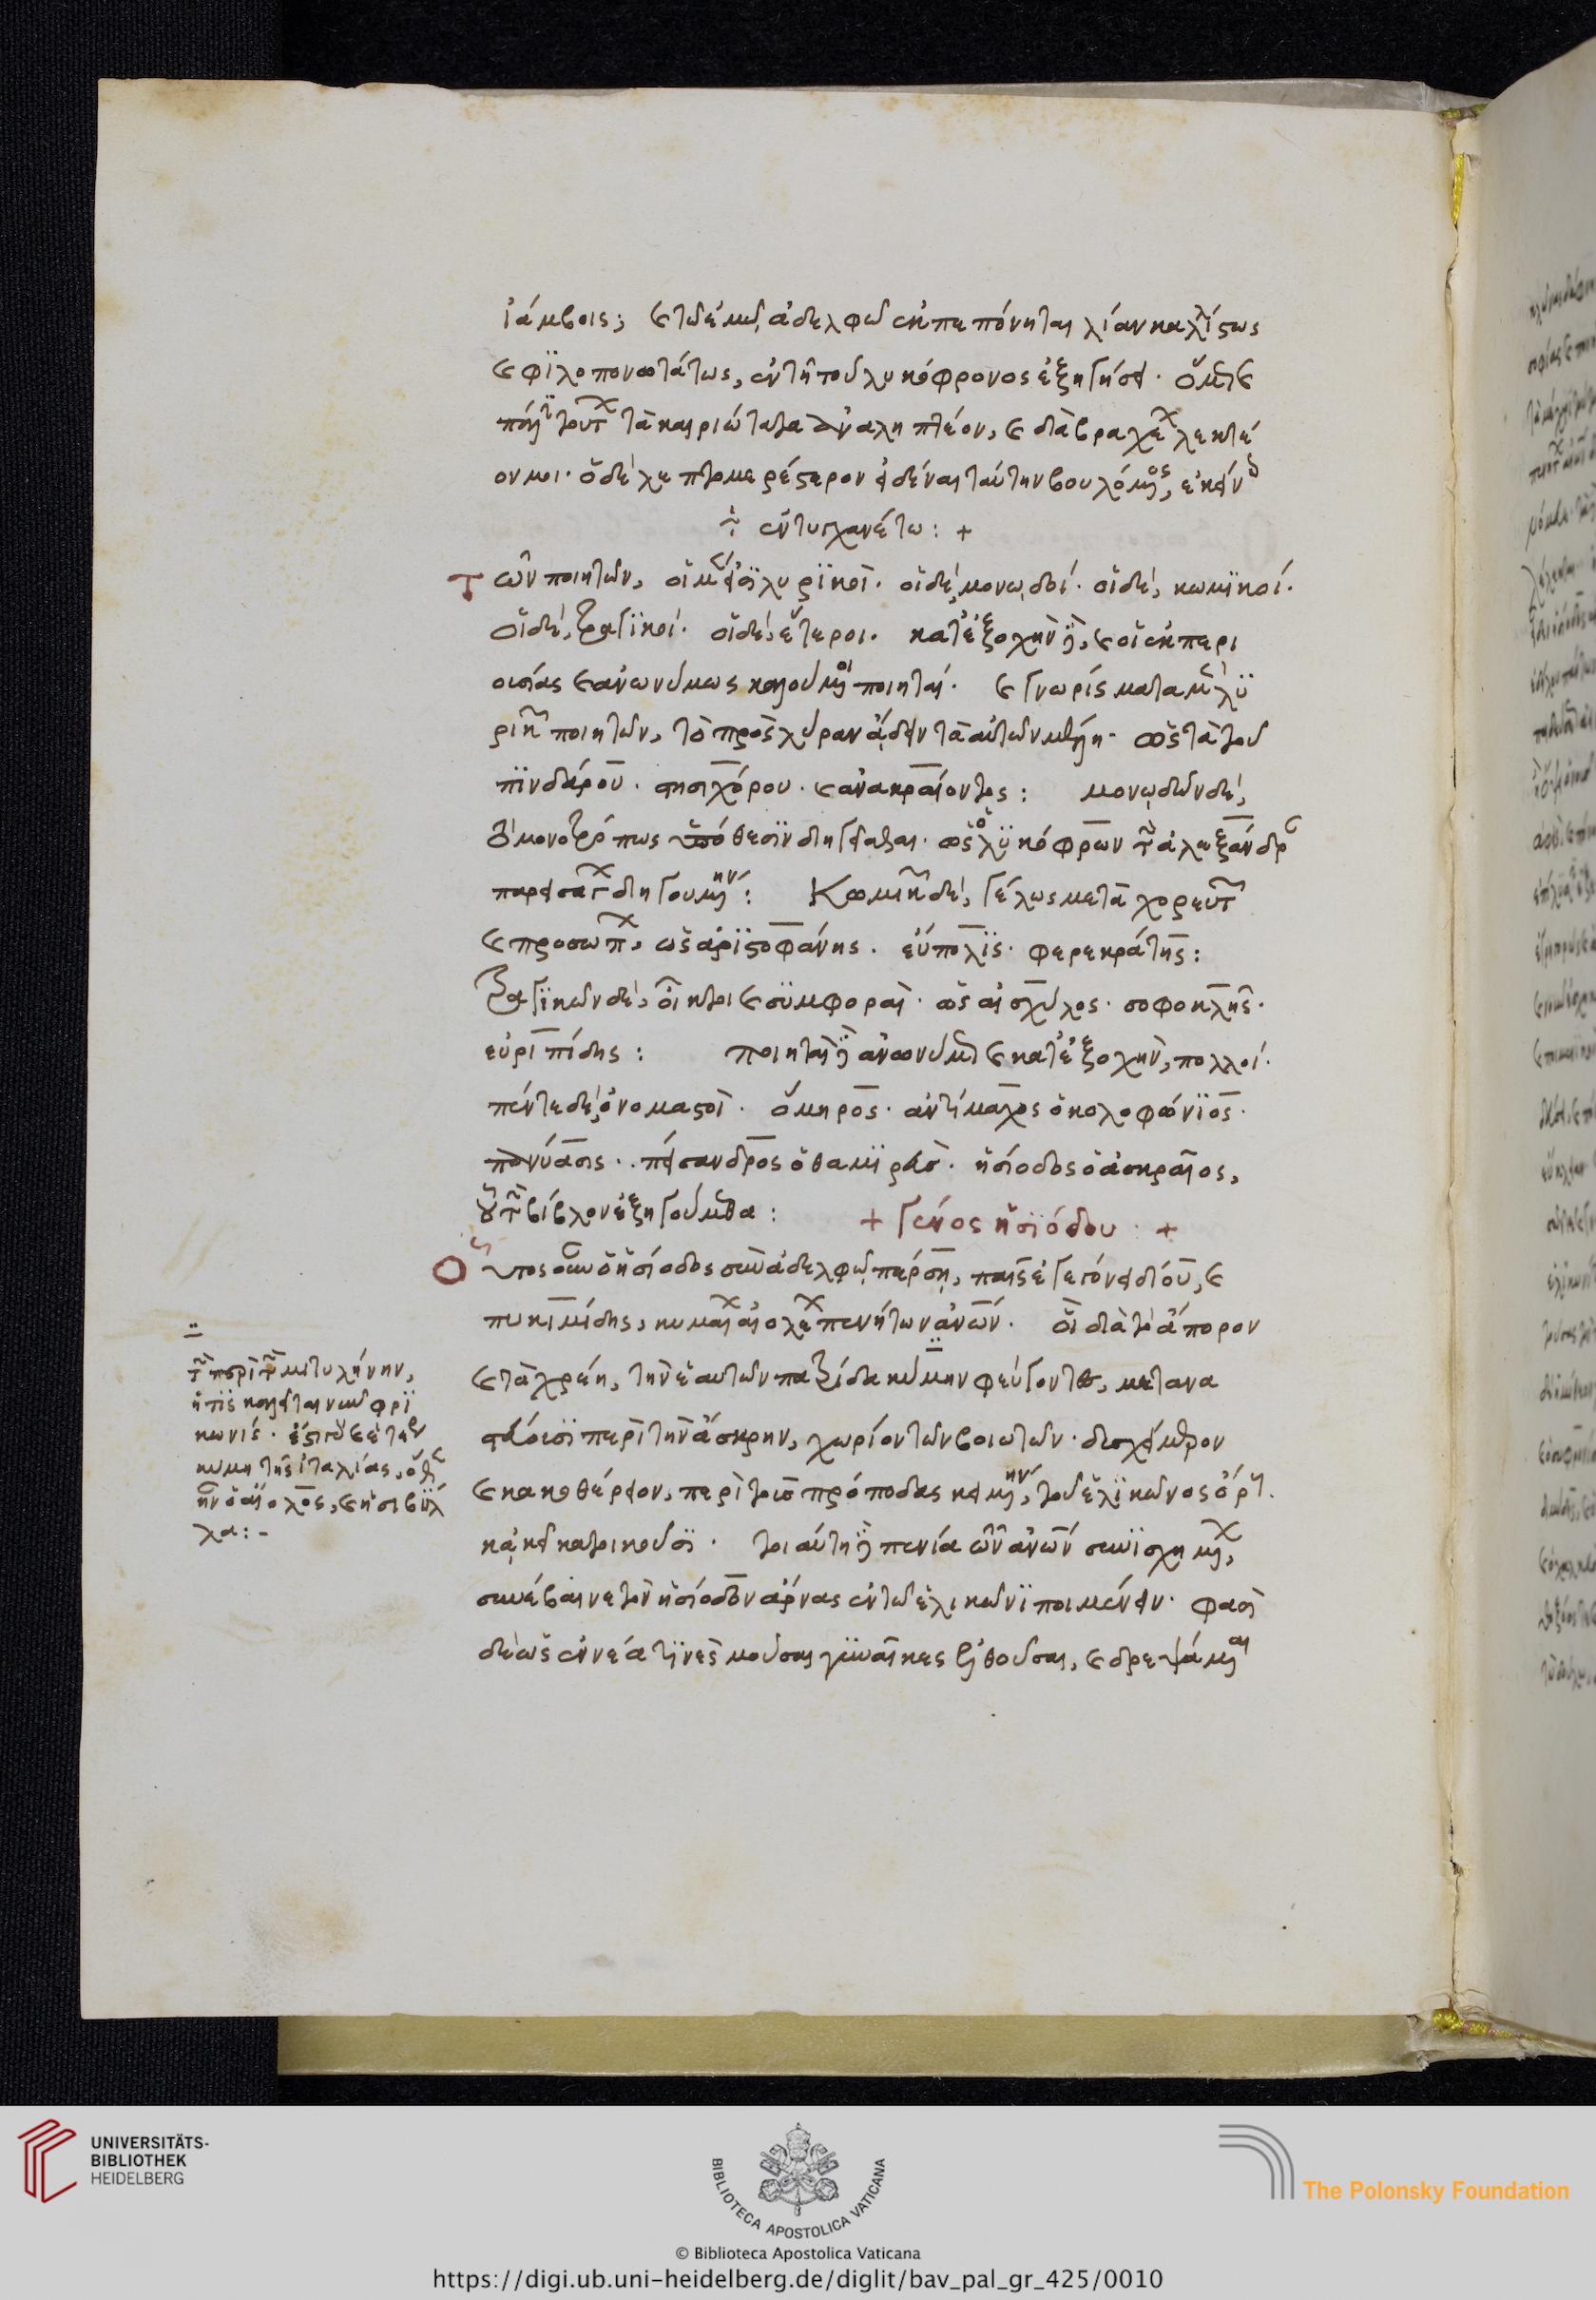 ἰάμβοις; καὶ τῷ ἐμῷ ἀδελφῷ ἐκπεπόνηται λίαν καλλίστως
καὶ φιλοπονωτάτως, ἐν τῇ τοῦ λυκόφρονος ἐξηγήσει. ὅμως καὶ
τούτων τὰ καιριώτατα ἀναληπτέον, καὶ διὰ βραχέων λεκτέ
ον μοι. ὁ δὲ λεπτομερέστερον εἰδέναι ταύτην βουλόμενος, ἐκείνου
τῇ ἐντυγχανέτω: +
Τῶν ποιητῶν, οἱ μέν εἰσι λυρικοί. οἱ δὲ, μονῳδοί. οἱ δὲ, κωμικοί.
οἱ δὲ, τραγικοί. οἱ δὲ, ἕτεροι. κατ' ἐξοχὴν δὲ, καὶ οἱ ἐκ περι
ουσίας καὶ ἀνωνύμως καλούμενοι ποιηταί. καὶ γνωρίσματα μὲν λυ
ρικῶν ποιητῶν, τὸ πρὸς λύραν ᾄδειν τὰ αὐτῶν μέλη. ὡς τὰ τοῦ
πινδάρου. στησιχόρου. καὶ ἀνακρέοντος: μονῳδῶν δὲ,
τὸ μονοτρόπως ὑπόθεσιν διηγεῖσθαι. ὡς ὁ λυκόφρων τὴν ἀλεξάνδραν
παρεισάγει διηγουμένην: Κωμικῶν δὲ, γέλως μετὰ χορευτῶν
καὶ προσώπων, ὡς ἀριστοφάνης. εὔπολις. φερεκράτης:
Τραγικῶν δὲ, οἶκτοι καὶ συμφοραί. ὡς αἰσχύλος. σοφοκλῆς.
εὐριπίδης: ποιηταὶ δὲ ἀνωνύμως καὶ κατ' ἐξοχὴν, πολλοί.
πέντε δὲ ὀνομαστοί. ὅμηρος. ἀντίμαχος ὁ κολοφώνιος.
πανύασις. πείσανδρος ὁ καμιρεύς. ἡσίοδος ὁ ἀσκραῖος,
οὗ τὴν βίβλον ἐξηγούμεθα: + γένος ἡσιόδου. +
Οὗτος οὖν ὁ ἡσίοδος σὺν ἀδελφῷ πέρσῃ, παῖς ἐγεγόνει δίου, καὶ
πυκιμίδης, κυμαίων αἰολέων πενήτων ἀνθρώπων. οἳ διὰ τὸ ἄπορον
καὶ τὰ χρέη, τὴν ἑαυτῶν πατρίδα κύμην φεύγοντες, μετανα
στεύουσι περὶ τὴν ἄσκρην, χωρίον τῶν βοιωτῶν. δυσχείμερον
καὶ κακοθέρειον, περὶ τοὺς πρόποδας κειμένην, τοῦ ἑλικῶνος ὄρους.
κἀκεῖ κατοικοῦσι. τοιαύτῃ δὲ πενίᾳ τῶν ἀνθρώπων συνισχημένων,
συνέβαινε τὸν ἡσίοδον ἄρνας ἐν τῷ ἑλικῶνι ποιμένειν. φασὶ
δὲ ὡς ἐννέα τινὲς μοῦσαι γυναῖκες ἐλθοῦσαι, καὶ δρεψάμεναι
τὴν περὶ τὴν μιτυλήνην,
ἥτις καλεῖται νῦν φρι
κωνίς. ἔστι δὲ καὶ ἑτέρα
κύμη τῆς ἰταλίας, ὅθεν
ἦν ὁ αἴολος, καὶ ἡ σιβύλ
λα:-
UNIVERSITÄTS-
BIBLIOTHEK
HEIDELBERG
BIBLIOTECA APOSTOLICA VATICANA
The Polonsky Foundation
© Biblioteca Apostolica Vaticana
https://digi.ub.uni-heidelberg.de/diglit/bav_pal_gr_425/0010